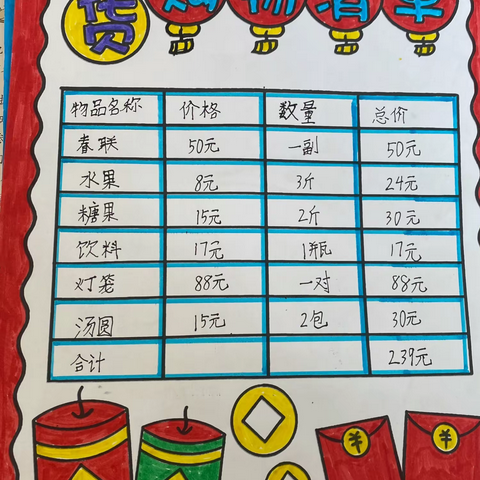 货
购物清单
物品名称 价格 数量 总价
春联 50元 一副 50元
水果 8元 3斤 24元
糖果 15元 2斤 30元
饮料 17元 1瓶 17元
灯笼 88元 一对 88元
汤圆 15元 2包 30元
合计 239元